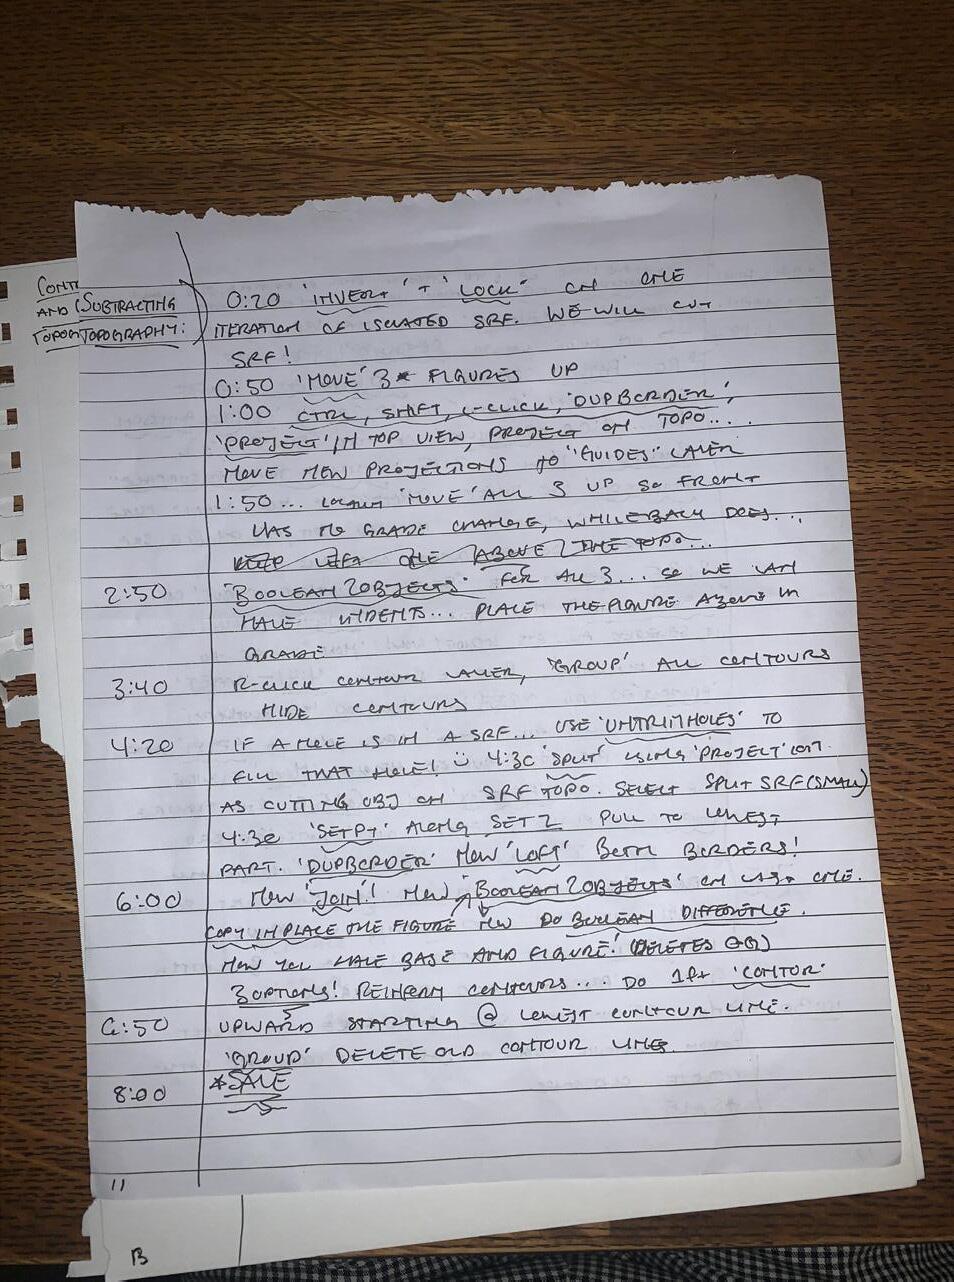 CONTI
AND (SUBTRACTING
TOPOG TOPOGRAPHY:
0:20 'INVERT' + 'LOCK' ON ONE
ITERATION OF ISOLATED SRF. WE WILL CUT
SRF!
0:50 'MOVE' 3 FIGURES UP
1:00 CTRL, SHIFT, L-CLICK, 'DUPBORDER',
'PROJECT' IN TOP VIEW, PROJECT ON TOPO...
MOVE NEW PROJECTIONS TO "GUIDES" LAYER
1:50 ... 'MOVE' ALL 3 UP SO FRONT
HAS NO GRADE CHANGE, WHILE BACK DOES...
KEEP LEFT ONE ABOVE THE TOPO...
2:50 'BOOLEAN 2OBJECTS' FOR ALL 3... SO WE CAN
HAVE INDENTS... PLACE THE FIGURE ABOVE IN
GRADE
3:40 R-CLICK CONTOUR LAYER, 'GROUP' ALL CONTOURS
HIDE CONTOURS
4:20 IF A HOLE IS IN A SRF... USE 'UNTRIMHOLES' TO
FILL THAT HOLE! 4:30 'SPLIT' USING 'PROJECT'
AS CUTTING OBJ ON SRF TOPO. SELECT SPLIT SRF (SMALL)
4:30 'SETPT' ALONG SET Z PULL TO LOWEST
PART. 'DUPBORDER' NOW 'LOFT' BOTH BORDERS!
6:00 NOW 'JOIN'! NOW 'BOOLEAN 2OBJECTS' ON LAST ONE.
COPY IN PLACE THE FIGURE NOW DO BOOLEAN DIFFERENCE.
NOW YOU HAVE BASE AND FIGURE! (DELETES OG)
3 OPTIONS! REINFORM CONTOURS... DO 1ft 'CONTOR'
6:50 UPWARD STARTING @ LOWEST CONTOUR LINE.
'GROUP' DELETE OLD CONTOUR LINES.
8:00 *SAVE
11
13